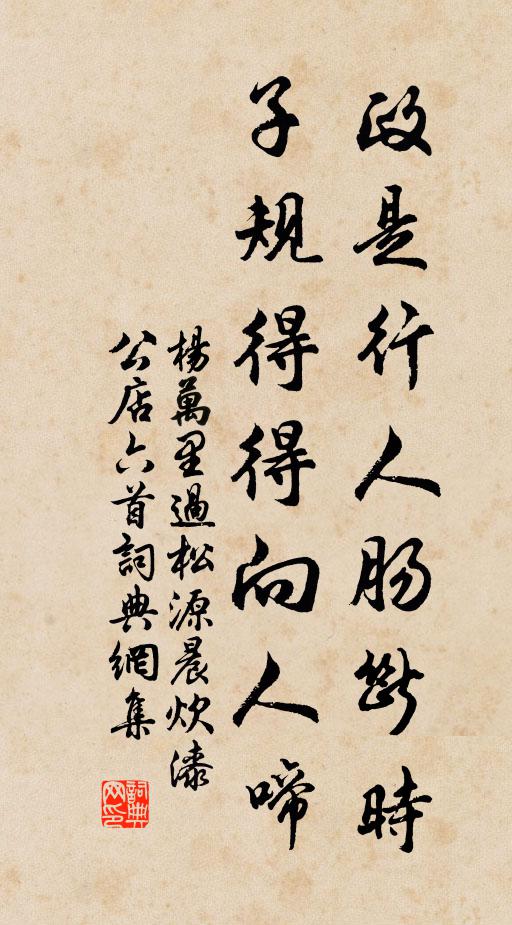 政是行人肠斷時
子規得得向人啼
楊萬里過松源晨炊漆
公店六首詞典網集
詞典网印